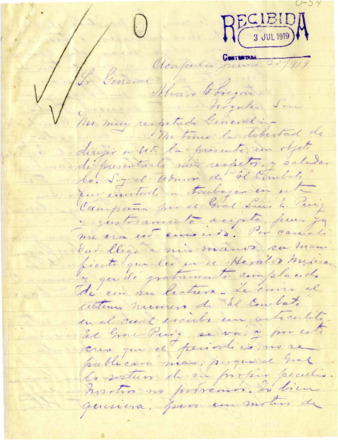 RECIBIDA
3 JUL 1919
CONTESTADA
Acapulco, junio 20/1919
Sr. General
Alvaro Obregón
Nogales, Son
Mi muy respetado General:
Me tomo la libertad de
dirigir a Ud. la presente, con objeto
de presentarle mis respetos, y saludar
lo. Soy el Admor de "El Combate",
me invitado a trabajar en esta
Campaña por el Gral
y gustosamente acepté, pues ya
me era
llegó a mis manos su man
ifiesto que leí en el Heraldo de Mexico
y quedé gratamente complacido
de con su lectura. Le envio el
último número de "El Combate"
en el cual escribo un articulito.
El Gral se va, y por esto
creo que el periodico no se
publicará mas, porque el Gral
lo sostuvo de su propio peculio.
Nosotros no podremos. Yo bien
quisiera, pero con motivo de